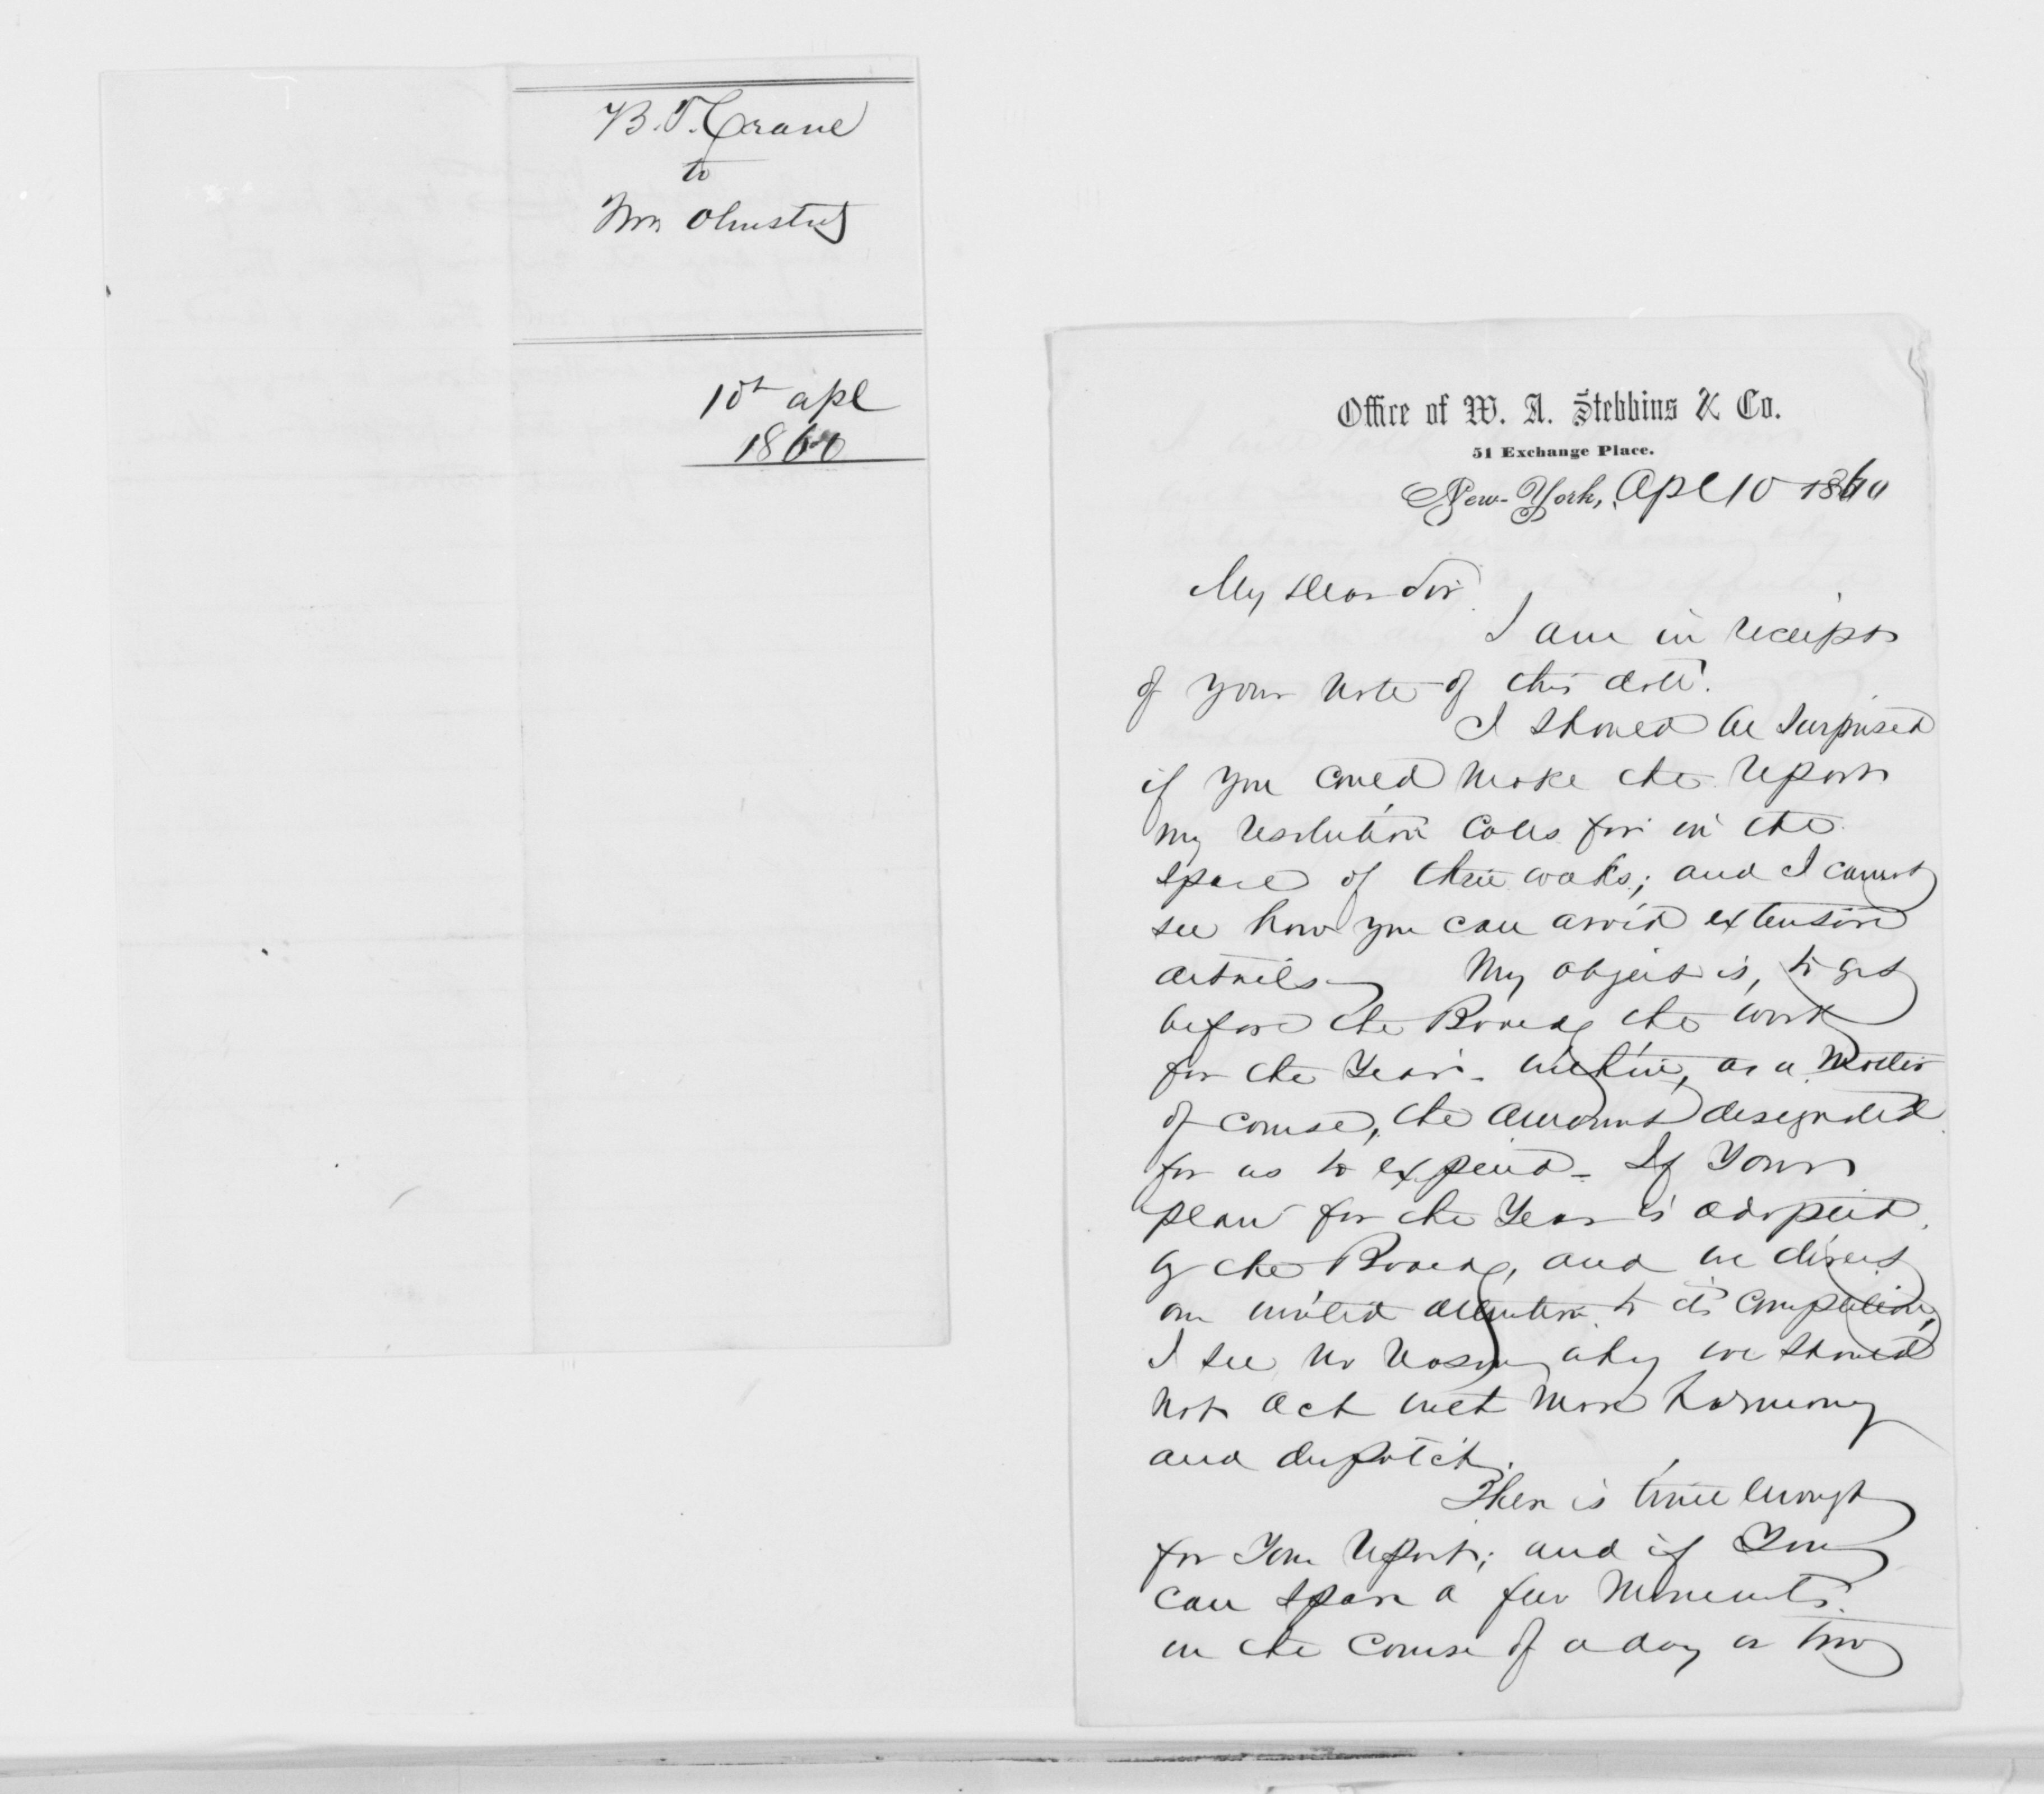 B. T. Crane
to
Mr. Olmsted
10th apl
1860
Office of W. A. Stebbins & Co.
51 Exchange Place.
New-York, Apl 10 1860
My dear Sir
I am in receipt
of your note of this date.
I should be surprised
if you could make the report
my resolution calls for in the
space of three weeks; and I cannot
see how you can avoid extensive
details— My object is, to get
before the Board the work
for the Year - within, as a matter
of course, the amount designated
for us to expend - If Your
plan for the Year is adopted
by the Board, and we direct
our united attention to its completion,
I see no reason why we should
not act with more harmony
and dispatch.
There is time enough
for Your report; and if You
can spare a few moments
in the course of a day or two